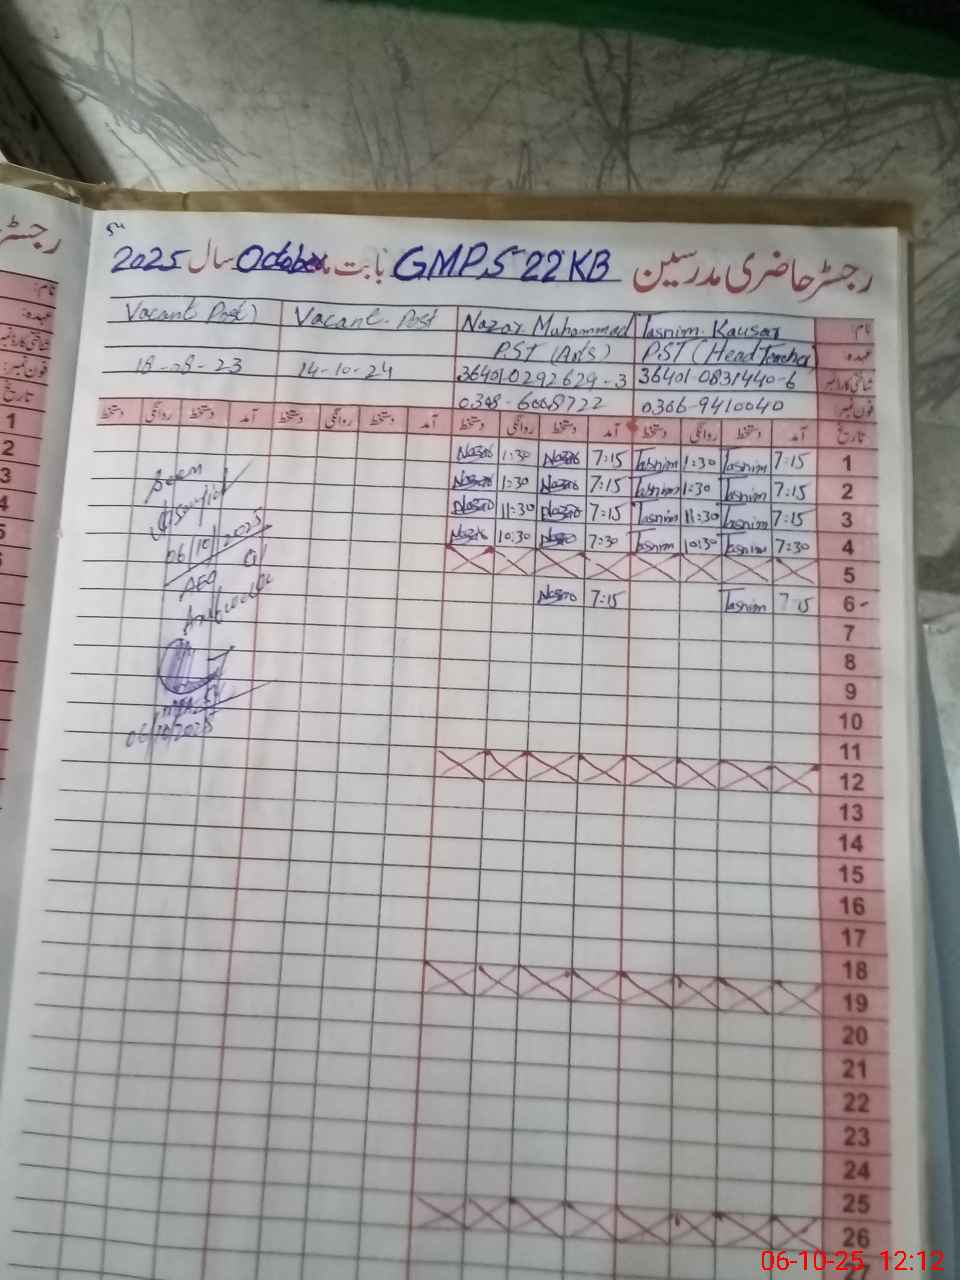 رجسٹر حاضری مدرسین GMPS 22 KB بابت ماہ October سال 2025
نام: Tasnim Kausar Nazar Muhammad Vacant Post Vacant Post
عہدہ: PST (Head Teacher) PST (Arts)
شناختی کارڈ نمبر 36401-0831440-6 36401-0292629-3 14-10-24 18-08-23
فون نمبر: 0306-9410040
تاریخ آمد دستخط روانگی دستخط آمد دستخط روانگی دستخط آمد دستخط روانگی دستخط آمد دستخط روانگی دستخط
1 7:15 Tasnim 1:30 Tasnim 7:15 Nazar 1:30 Nazar
2 7:15 Tasnim 1:30 Tasnim 7:15 Nazar 1:30 Nazar
3 7:15 Tasnim 11:30 Tasnim 7:15 Nazar 11:30 Nazar
4 7:30 Tasnim 10:30 Tasnim 7:30 Nazar 10:30 Nazar
5
6 7:15 Tasnim 7:15 Nazar
7
8
9
10
11
12
13
14
15
16
17
18
19
20
21
22
23
24
25
26
Seen
06/10/2025
AEO
06/10/2025
رجسٹر
نام:
عہدہ:
فون نمبر:
تاریخ
1
2
3
4
5
06-10-25 12:12